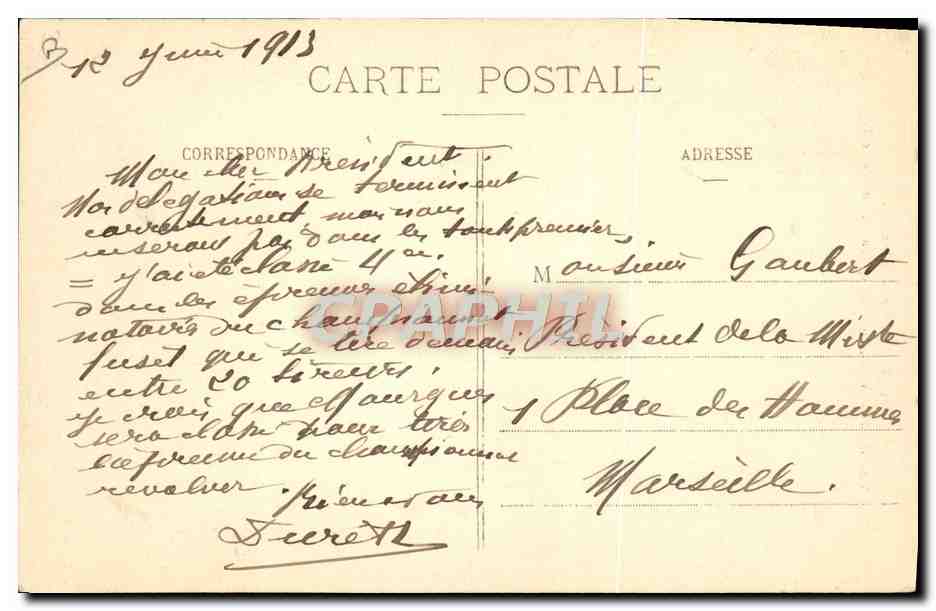 12 Juin 1913
CARTE POSTALE
CORRESPONDANCE
ADRESSE
Mon cher Président
Nos délégations se terminent
carrément, mais nous
ne serons pas dans les touts premiers,
= J'ai été classé 4 en.
dans les épreuves élimi
natoires du championnat
fusil qui se tire demain
entre 20 tireurs.
Je crois que Mourgues
sera classé pour tirer
l'épreuve du championnat
revolver. Bien à vous
Dureth
Monsieur Gaubert
Président de la Mixte
1 Place des Hommes
Marseille.
CARAPHIL